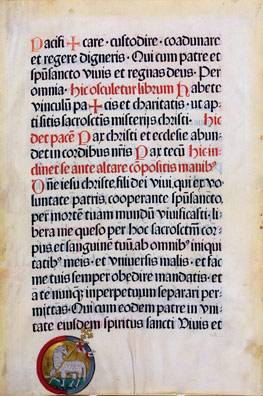 Pacifi✝care · custodire · coadunare
et regere digneris · Qui cum patre et
sp̃usancto vivis et regnas deus · Per
omnia · hic osculetur librum habete
vinculũ pa✝cis et charitatis · ut ap-
ti sitis sacrostĩs misterijs christi · hic
det pacẽ Pax christi et ecclesie abun
det in cordibus nr̃is Pax tecũ hic in-
clinet se ante altare cõpositis manibꝰ
Dñe iesu christe, fili dei vivi, qui ex vo-
luntate patris, cooperante sp̃usancto,
per mortẽ tuam mundũ vivificasti · li
bera me queso per hoc sacrosctm̃ cor-
pus et sanguinẽ tuũ, ab omnibꝰ iniqui
tatibꝰ meis · et vniversis malis · et fac
me tuis semper obedire mandatis · et
a te nunq̃ inperpetuum separari per-
mittas · Qui cum eodem patre in vni-
tate eiusdem spiritus sancti Vivis et